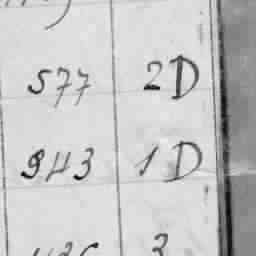 577 2D
943 1D